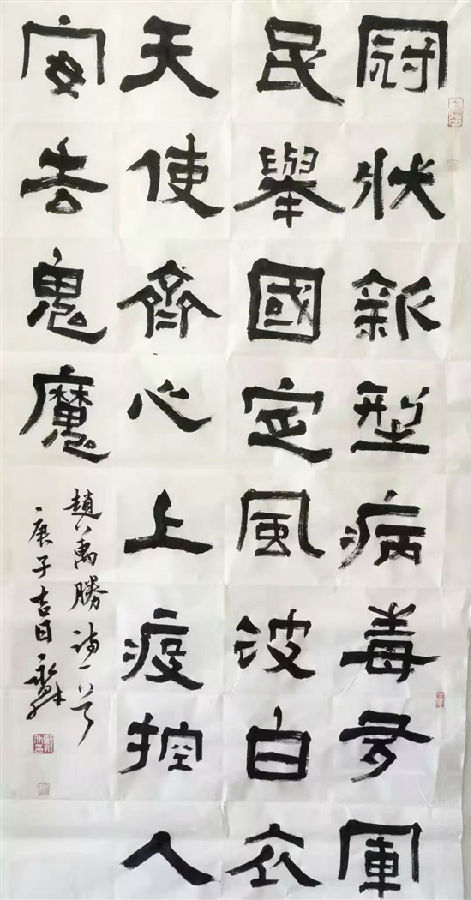 冠狀新型病毒多軍
民舉國定風波白衣
天使齊心上疫控人
安去鬼魔
趙萬勝詩一首
庚子吉日